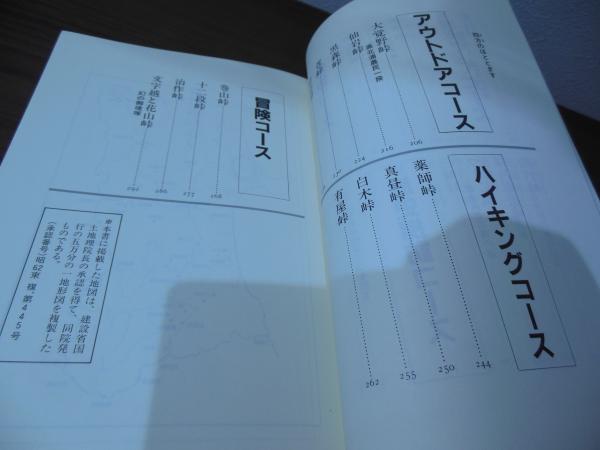 アウトドアコース
大覚野峠
奥北浦農民一揆
206
仙岩峠
216
黒森峠
224
230
ハイキングコース
薬師峠
244
真昼峠
250
白木峠
255
有屋峠
262
冒険コース
巻山峠
268
十二段峠
277
治作峠
286
文字越と花山峠
幻の郵便塚
292
※本書に掲載した地図は、建設省国
土地理院長の承認を得て、同院発
行の五万分の一地形図を複製した
ものである。
(承認番号)昭62東 複、第445号